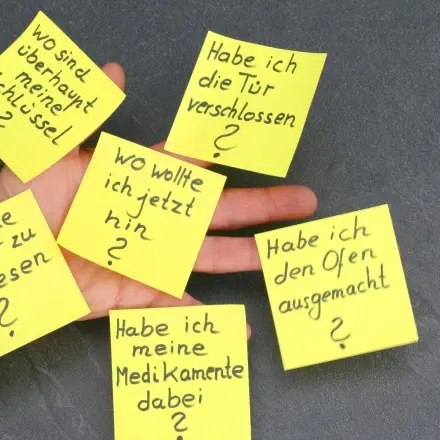 Wo sind
überhaupt
meine
chlüssel
?
Habe ich
die Tür
verschlossen
?
Wo wollte
ich jetzt
hin
?
zu
?
Habe ich
den Ofen
ausgemacht
?
Habe ich
meine
Medikamente
dabei
?